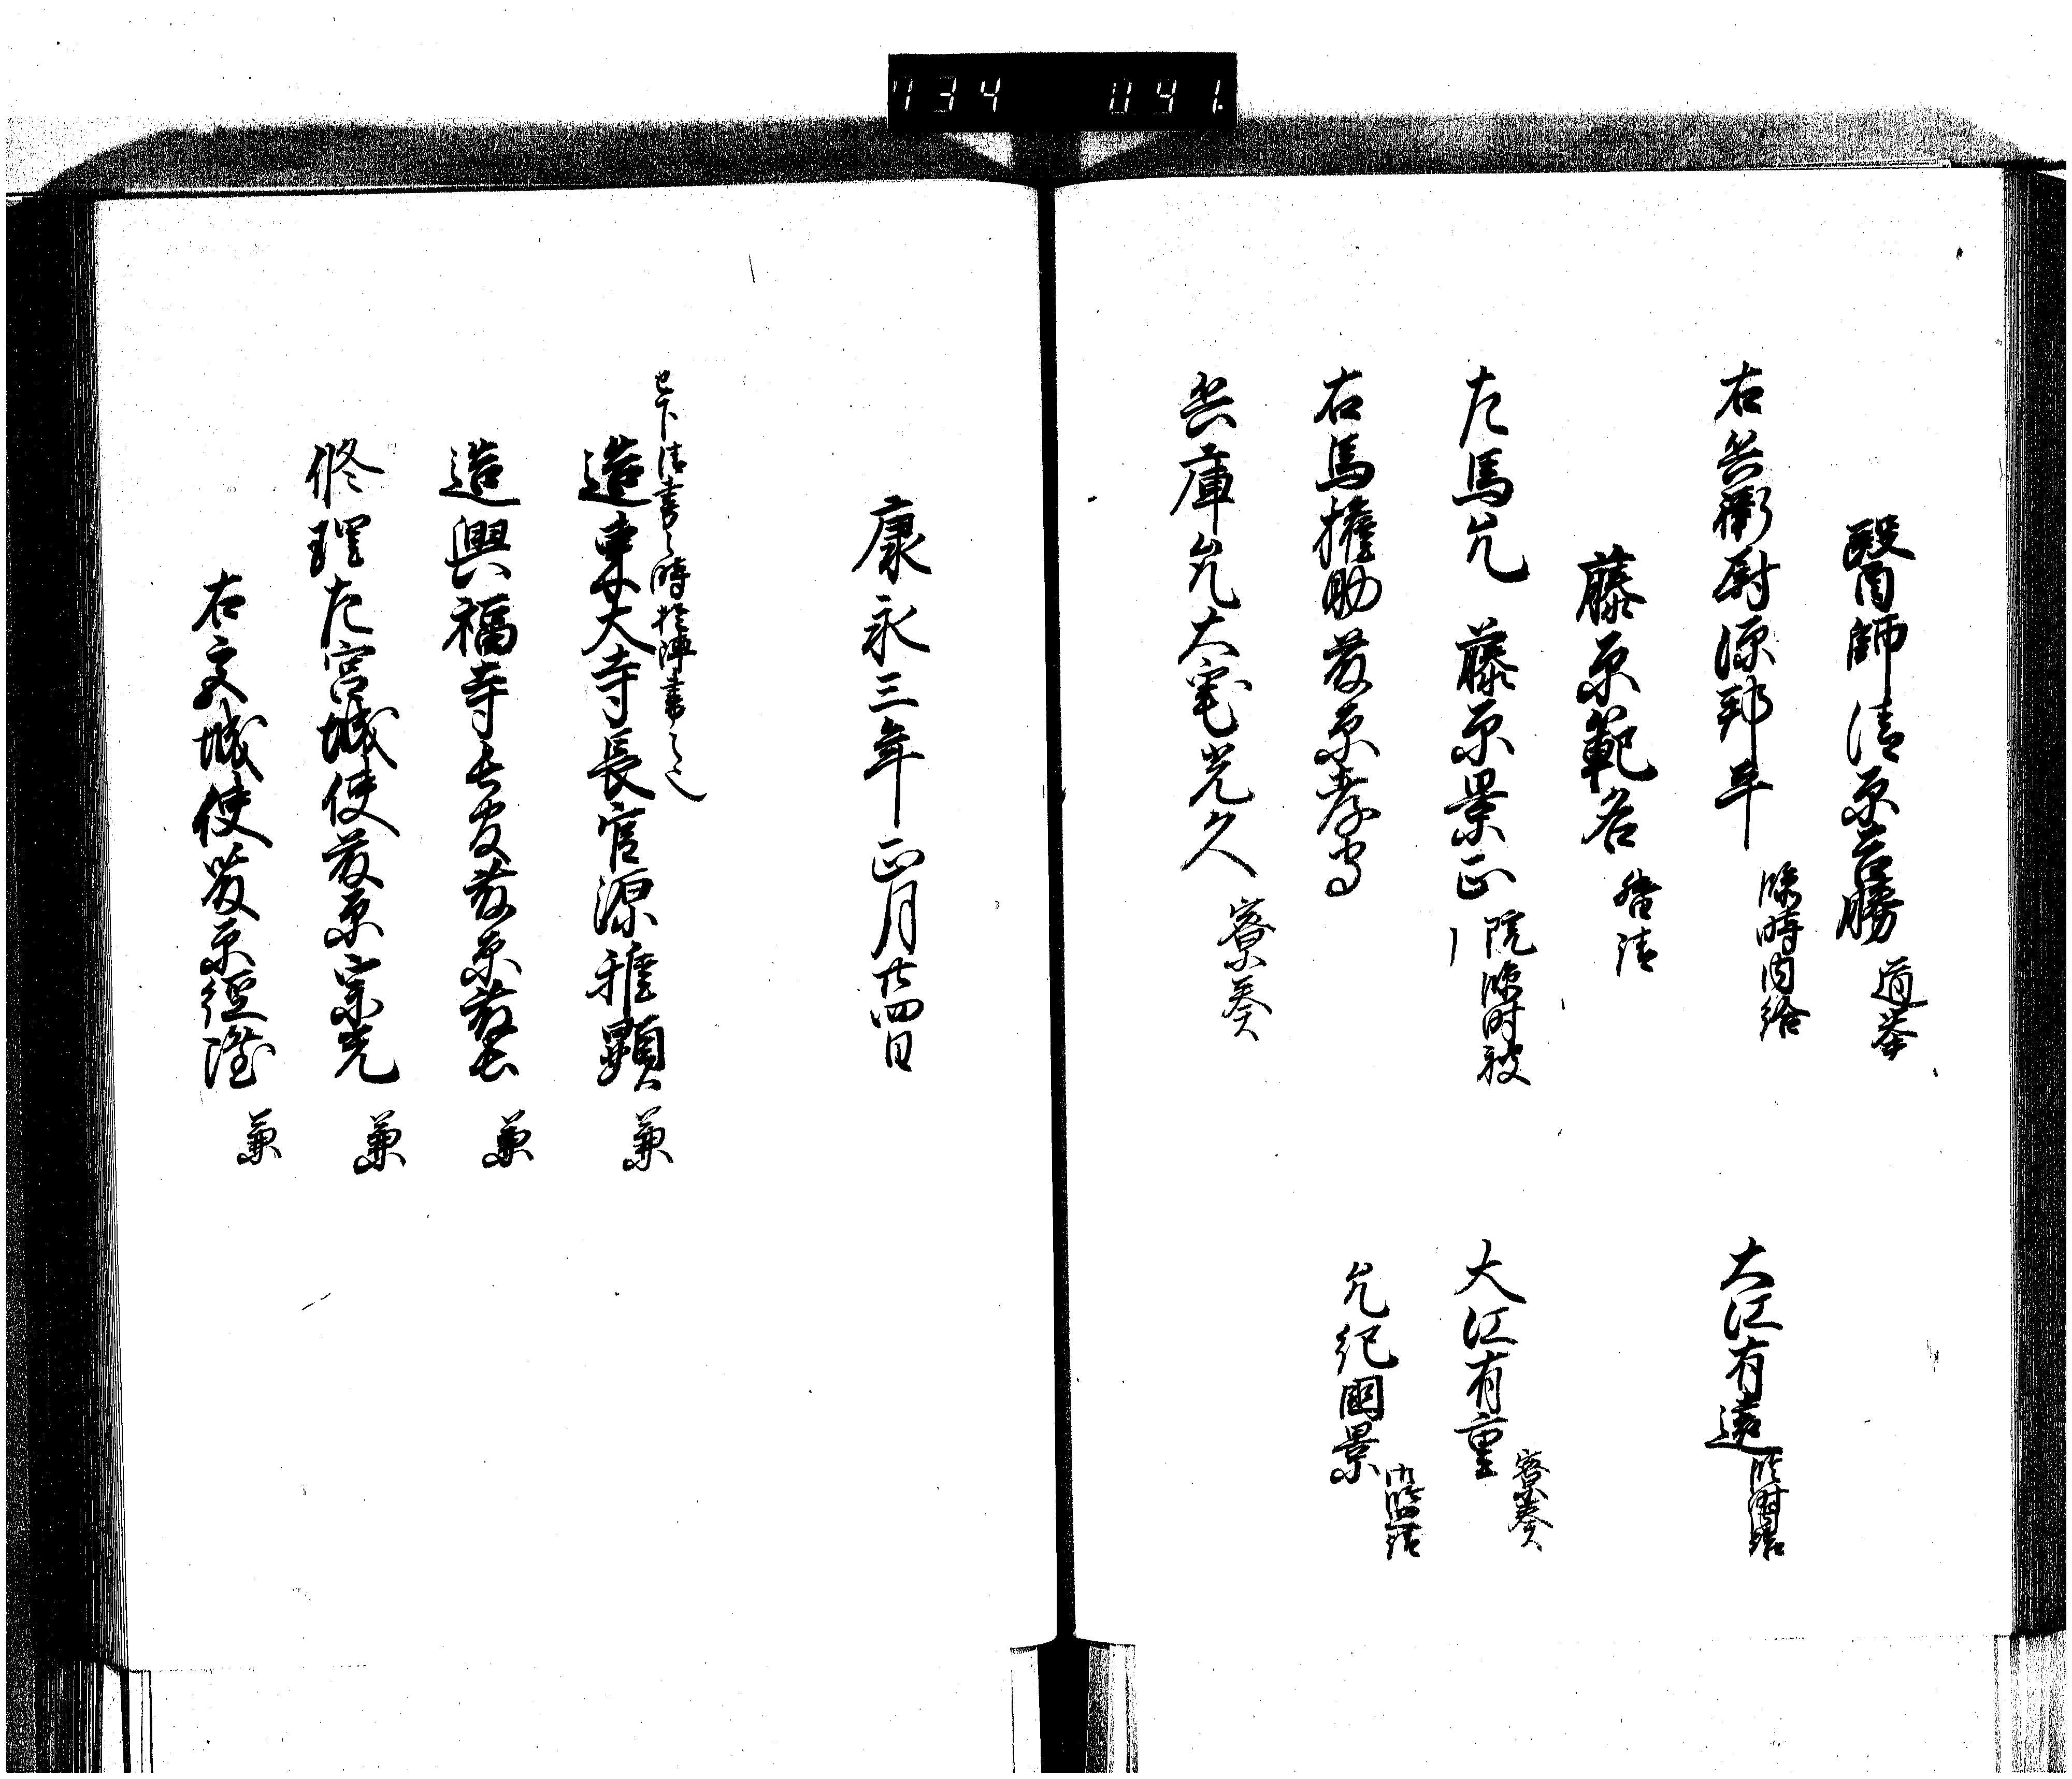 734 041
醫師清原吉勝 道挙
右兵衛尉源邦年 臨時内給 大江有遠 臨時内給
藤原範名
左馬允 藤原景正 院臨時被 大江有重 寮奏
右馬権助藤原孝 允紀國景
兵庫允大宅光久 寮奏
康永三年正月廿四日
已下清書之時於陣書之
造東大寺長官源雅顕 兼
造興福寺長官藤原教長 兼
修理左宮城使藤原宗光 兼
右宮城使藤原経隆 兼